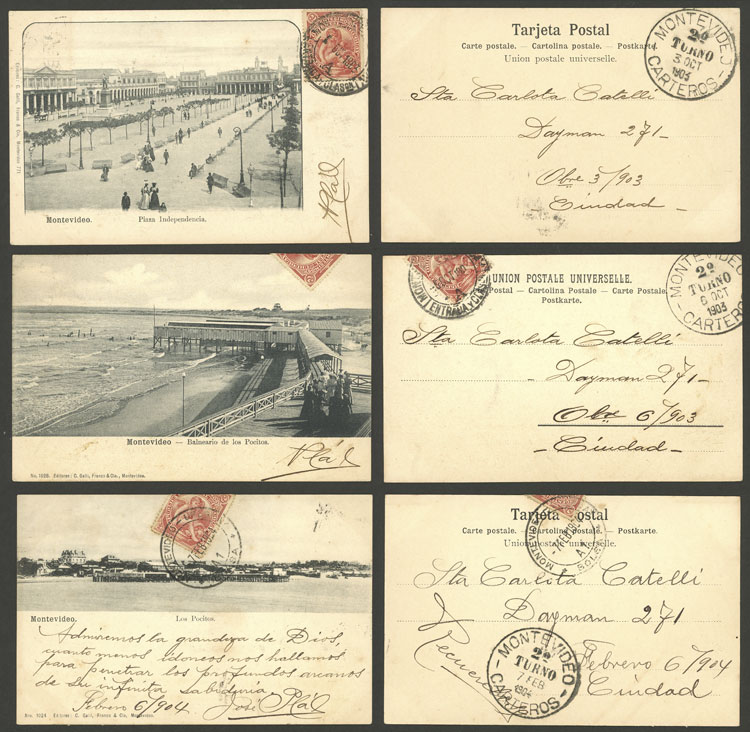 Editores: C. Galli, Franco & Cía, Montevideo
Montevideo.
Plaza Independencia.
Plál
Tarjeta Postal
Carte postale. — Cartolina postale. — Postkarte.
Union postale universelle.
MONTEVIDEO
2º
TURNO
3 OCT
1903
CARTEROS
Sta Carlota Catelli
Dayman 271-
Obre 3/903
- Ciudad -
Montevideo — Balneario de los Pocitos.
Plál
No. 1028. Editores: C. Galli, Franco & Cía., Montevideo.
UNION POSTALE UNIVERSELLE.
Postal — Cartolina Postale — Carte Postale.
Postkarte.
MONTEVIDEO
2º
TURNO
6 OCT
1903
CARTEROS
Sta Carlota Catelli
Dayman 271-
Obre 6/903
- Ciudad -
Montevideo.
Los Pocitos.
Admiremos la grandeza de Dios,
cuanto menos idoneos nos hallamos
para penetrar los profundos arcanos
de su infinita Sabiduria
Febrero 6/904 José Plál
Nro. 1024 Editores: C. Galli, Franco & Cía, Montevideo.
Tarjeta Postal
Carte postale. — Cartolina postale. — Postkarte.
Union postale universelle.
Sta Carlota Catelli
Dayman 271
Febrero 6/904
Ciudad
MONTEVIDEO
2º
TURNO
7 FEB
1904
CARTEROS